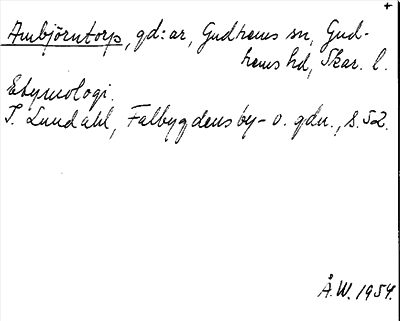 Ambjörntorp, gd:ar, Gudhems sn, Gud-
hems hd, Skar. l.
Etymologi.
I. Lundahl, Falbygdens by- o. gdn., s. 52.
Å.W. 1954.